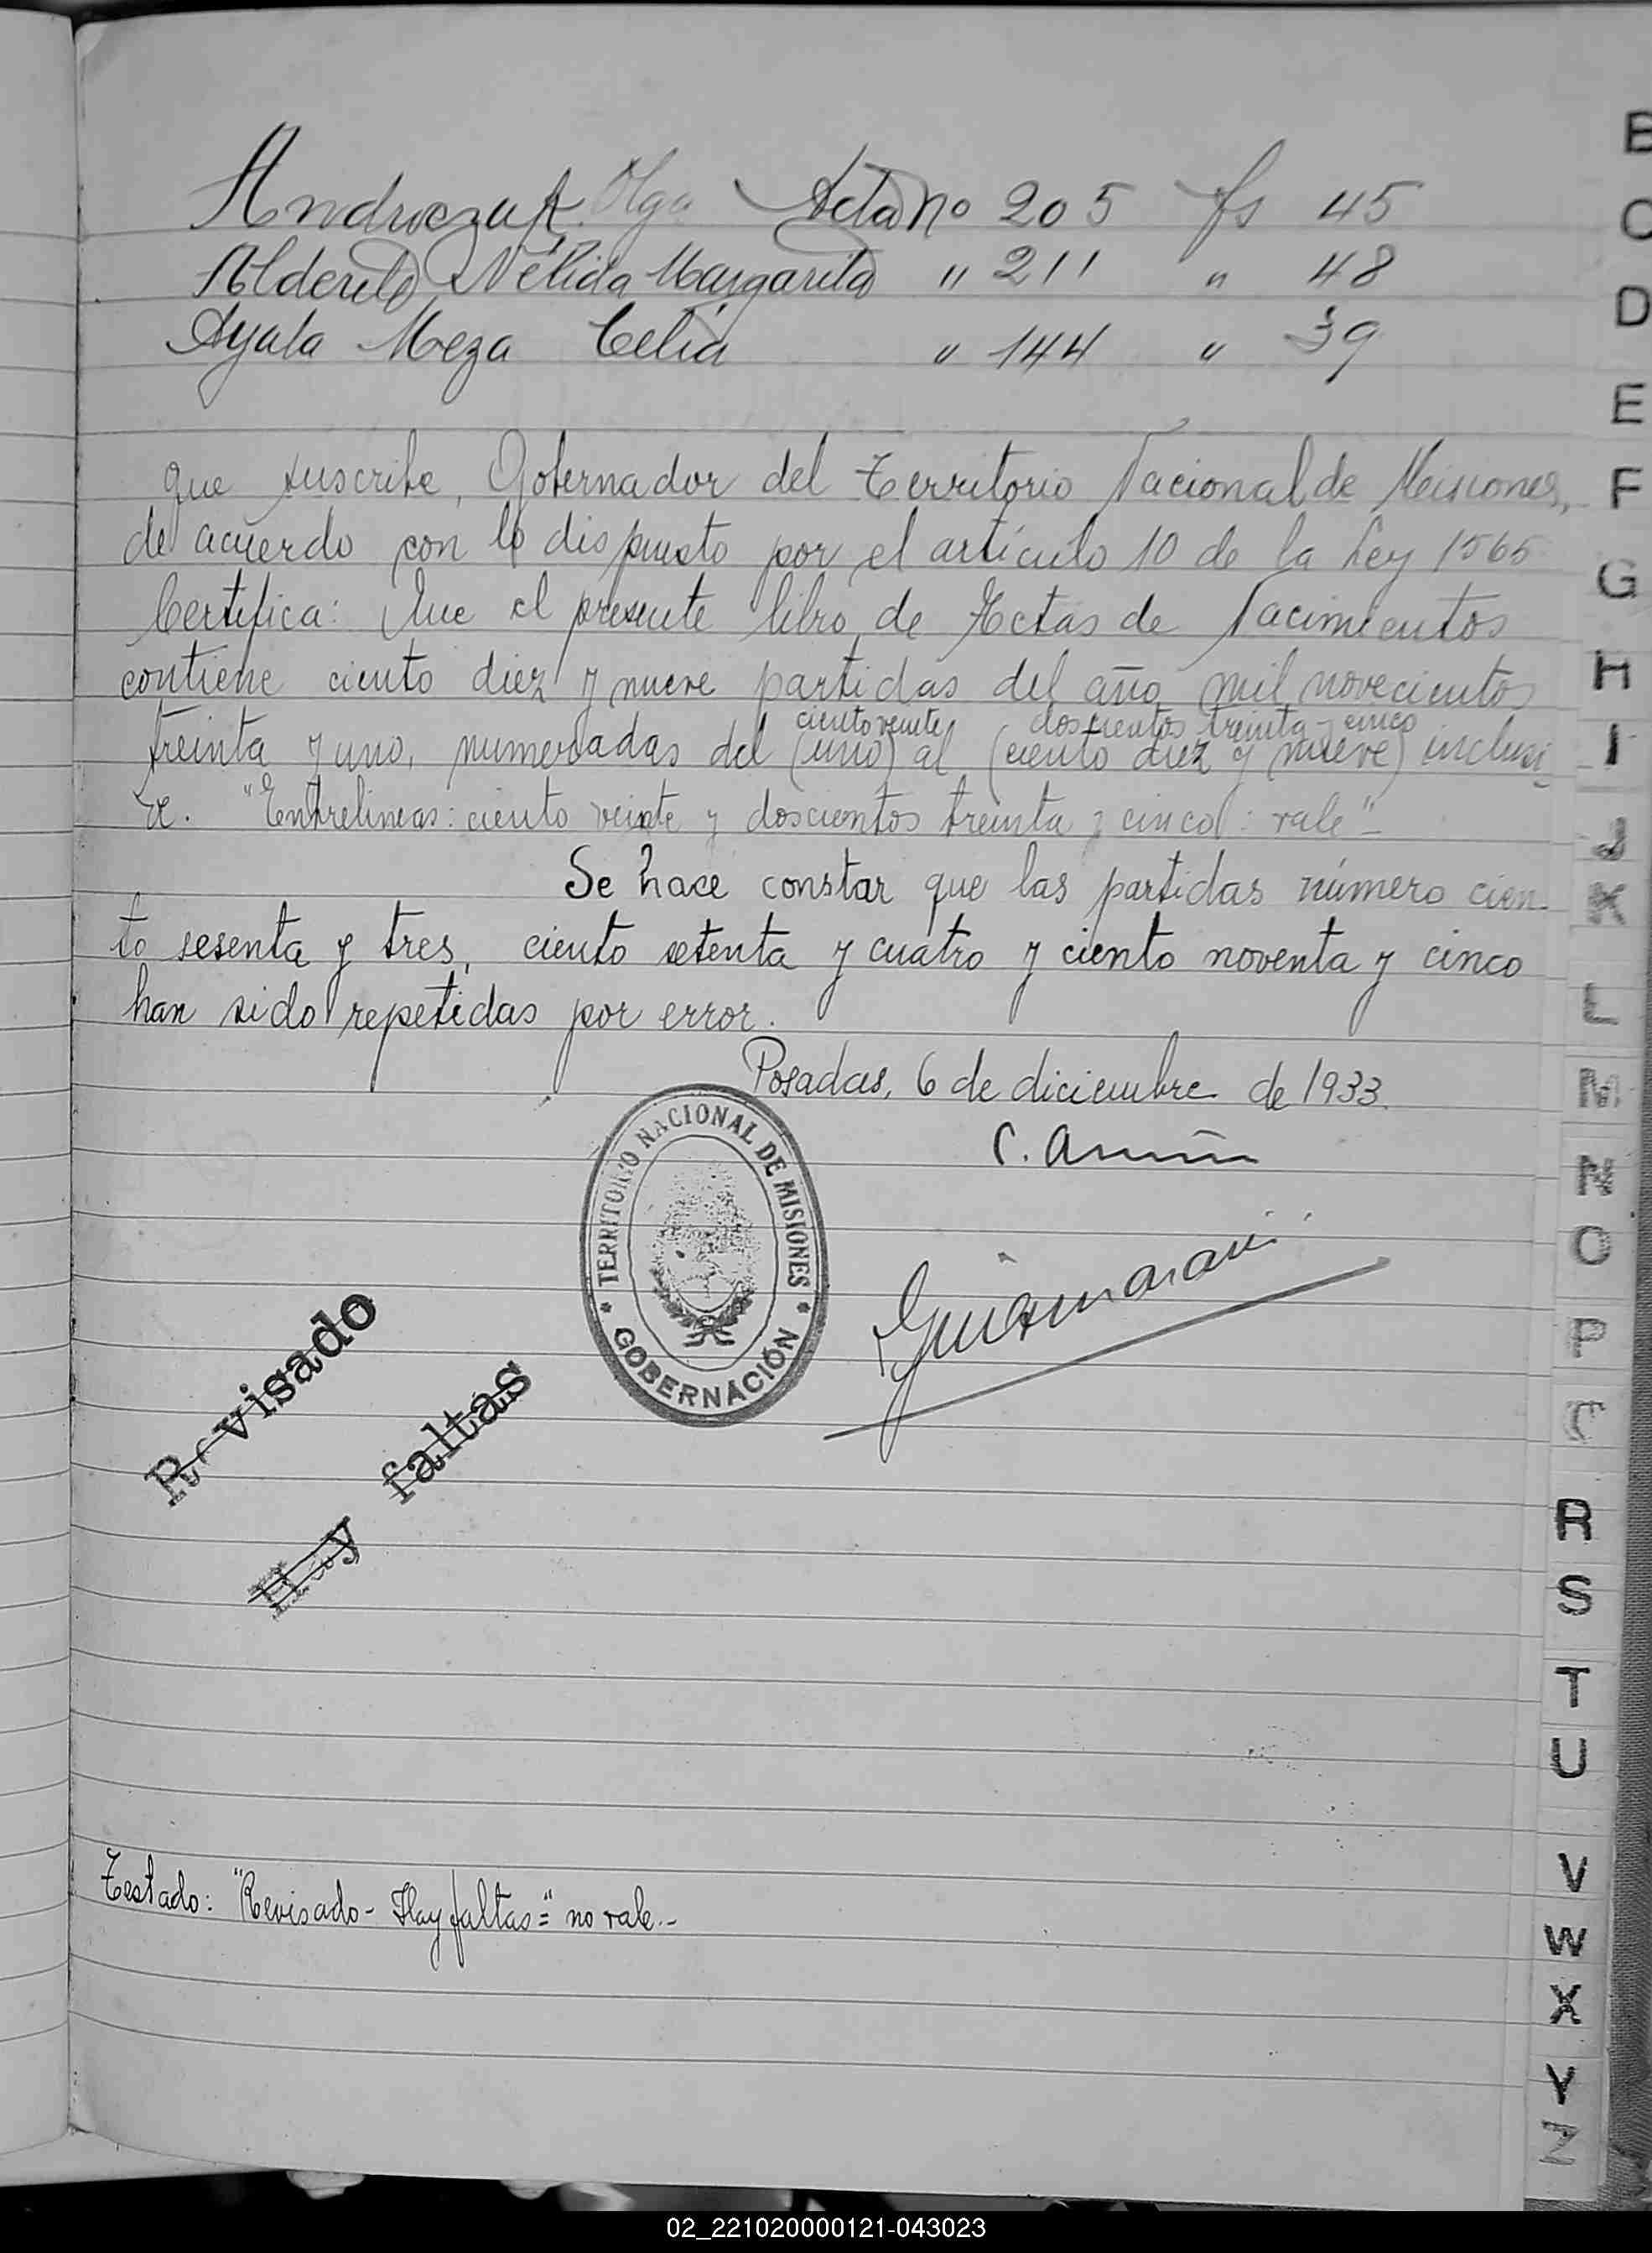 Olga Acta Nº 205 fs 45
Nélida Margarita " 211 " 48
Ayala Meza Celia " 144 " 39
que suscribe, Gobernador del Territorio Nacional de Misiones,
de acuerdo con lo dispuesto por el artículo 10 de la Ley 1565
Certifica: Que el presente libro de Actas de Nacimientos
contiene ciento diez y nueve partidas del año mil novecientos
ciento veinte doscientos treinta y cinco
treinta y uno, numeradas del (uno) al (ciento diez y nueve) inclusi-
ve. "Entrelineas: ciento veinte y doscientos treinta y cinco: vale"-
Se hace constar que las partidas número cien-
to sesenta y tres, ciento setenta y cuatro y ciento noventa y cinco
han sido repetidas por error.
Posadas, 6 de diciembre de 1933.
TERRITORIO NACIONAL DE MISIONES
* GOBERNACIÓN *
Revisado
Hay faltas
Testado: "Revisado- Hay faltas=" no vale.-
B
C
D
E
F
G
H
I
J
K
L
M
N
O
P
R
S
T
U
V
W
X
Y
Z
02_221020000121-043023